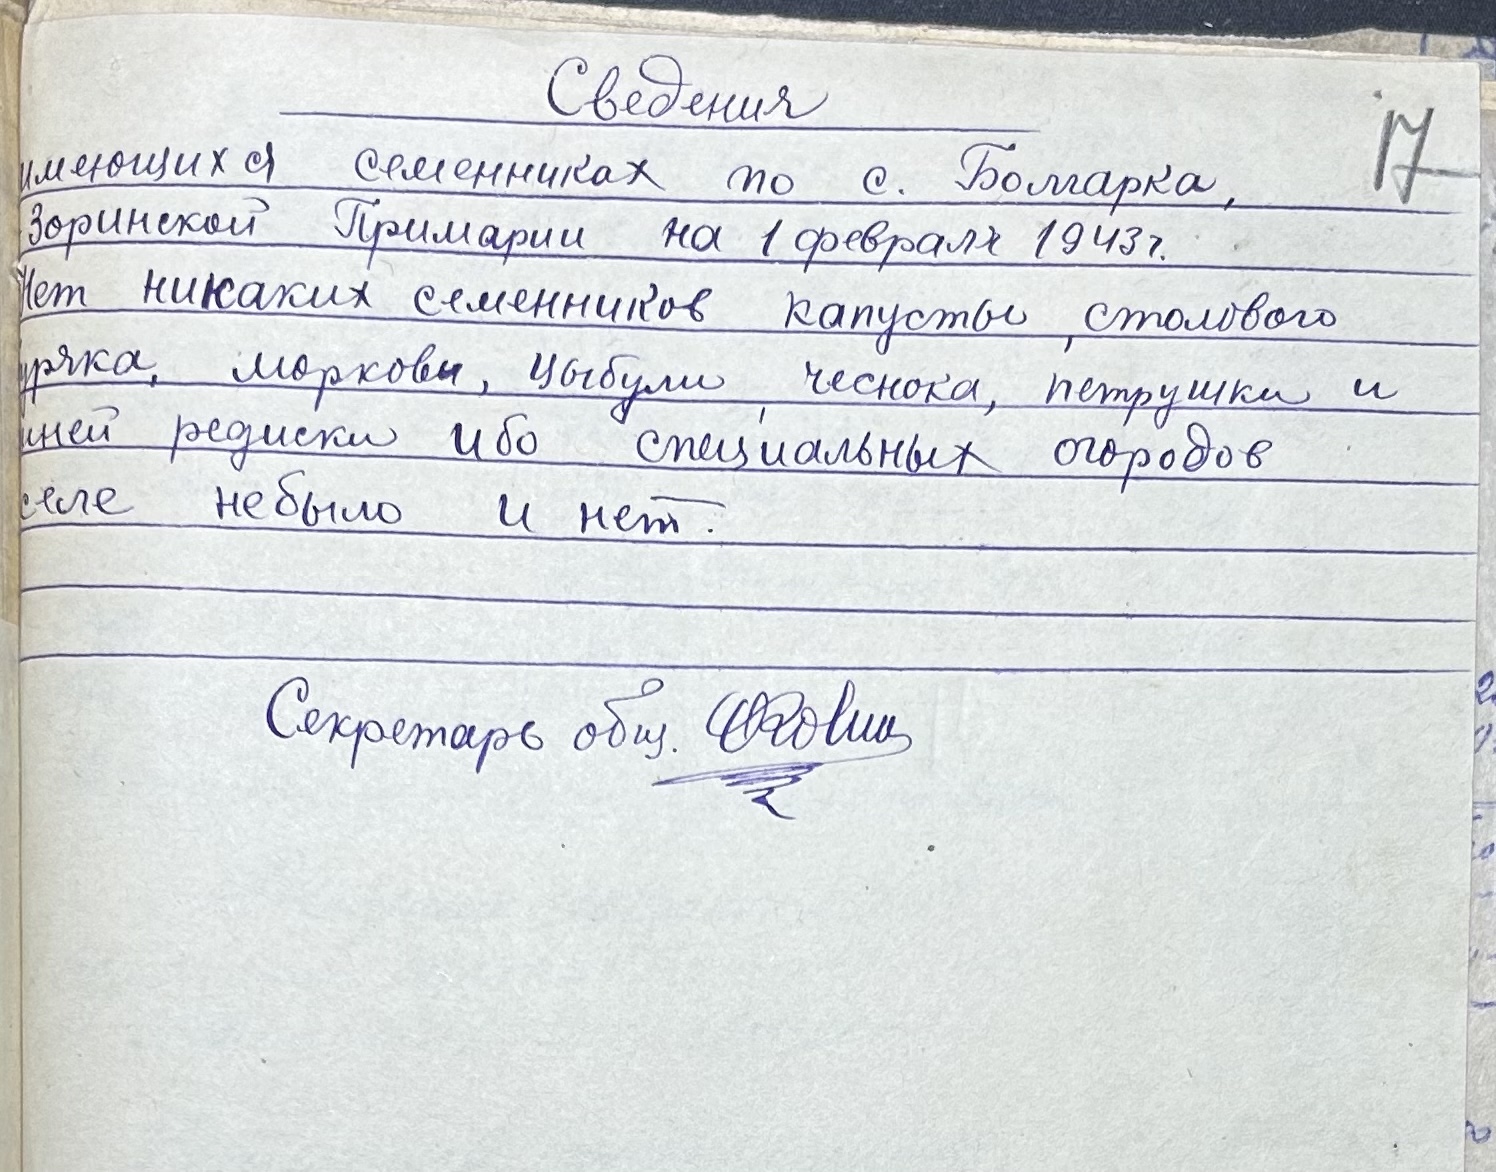 Сведения
17
имеющихся семенниках по с. Болгарка,
Зоринской Примарии на 1 февраля 1943 г.
Нет никаких семенников капусты, столового
уряка, моркови, цыбули, чеснока, петрушки и
ней редиски ибо специальных огородов
селе небыло и нет.
Секретарь общ.